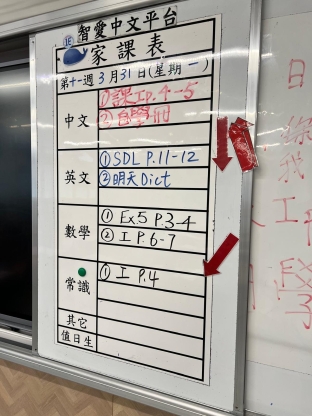 智愛中文平台
1E
家課表
第十一週 3月31日(星期一)
中文
①課工P.4-5
②自學冊
英文
①SDL P.11-12
②明天Dict
數學
①Ex.5 P.3-4
②工P.6-7
常識
①工 P.4
其它
值日生
日
我
工